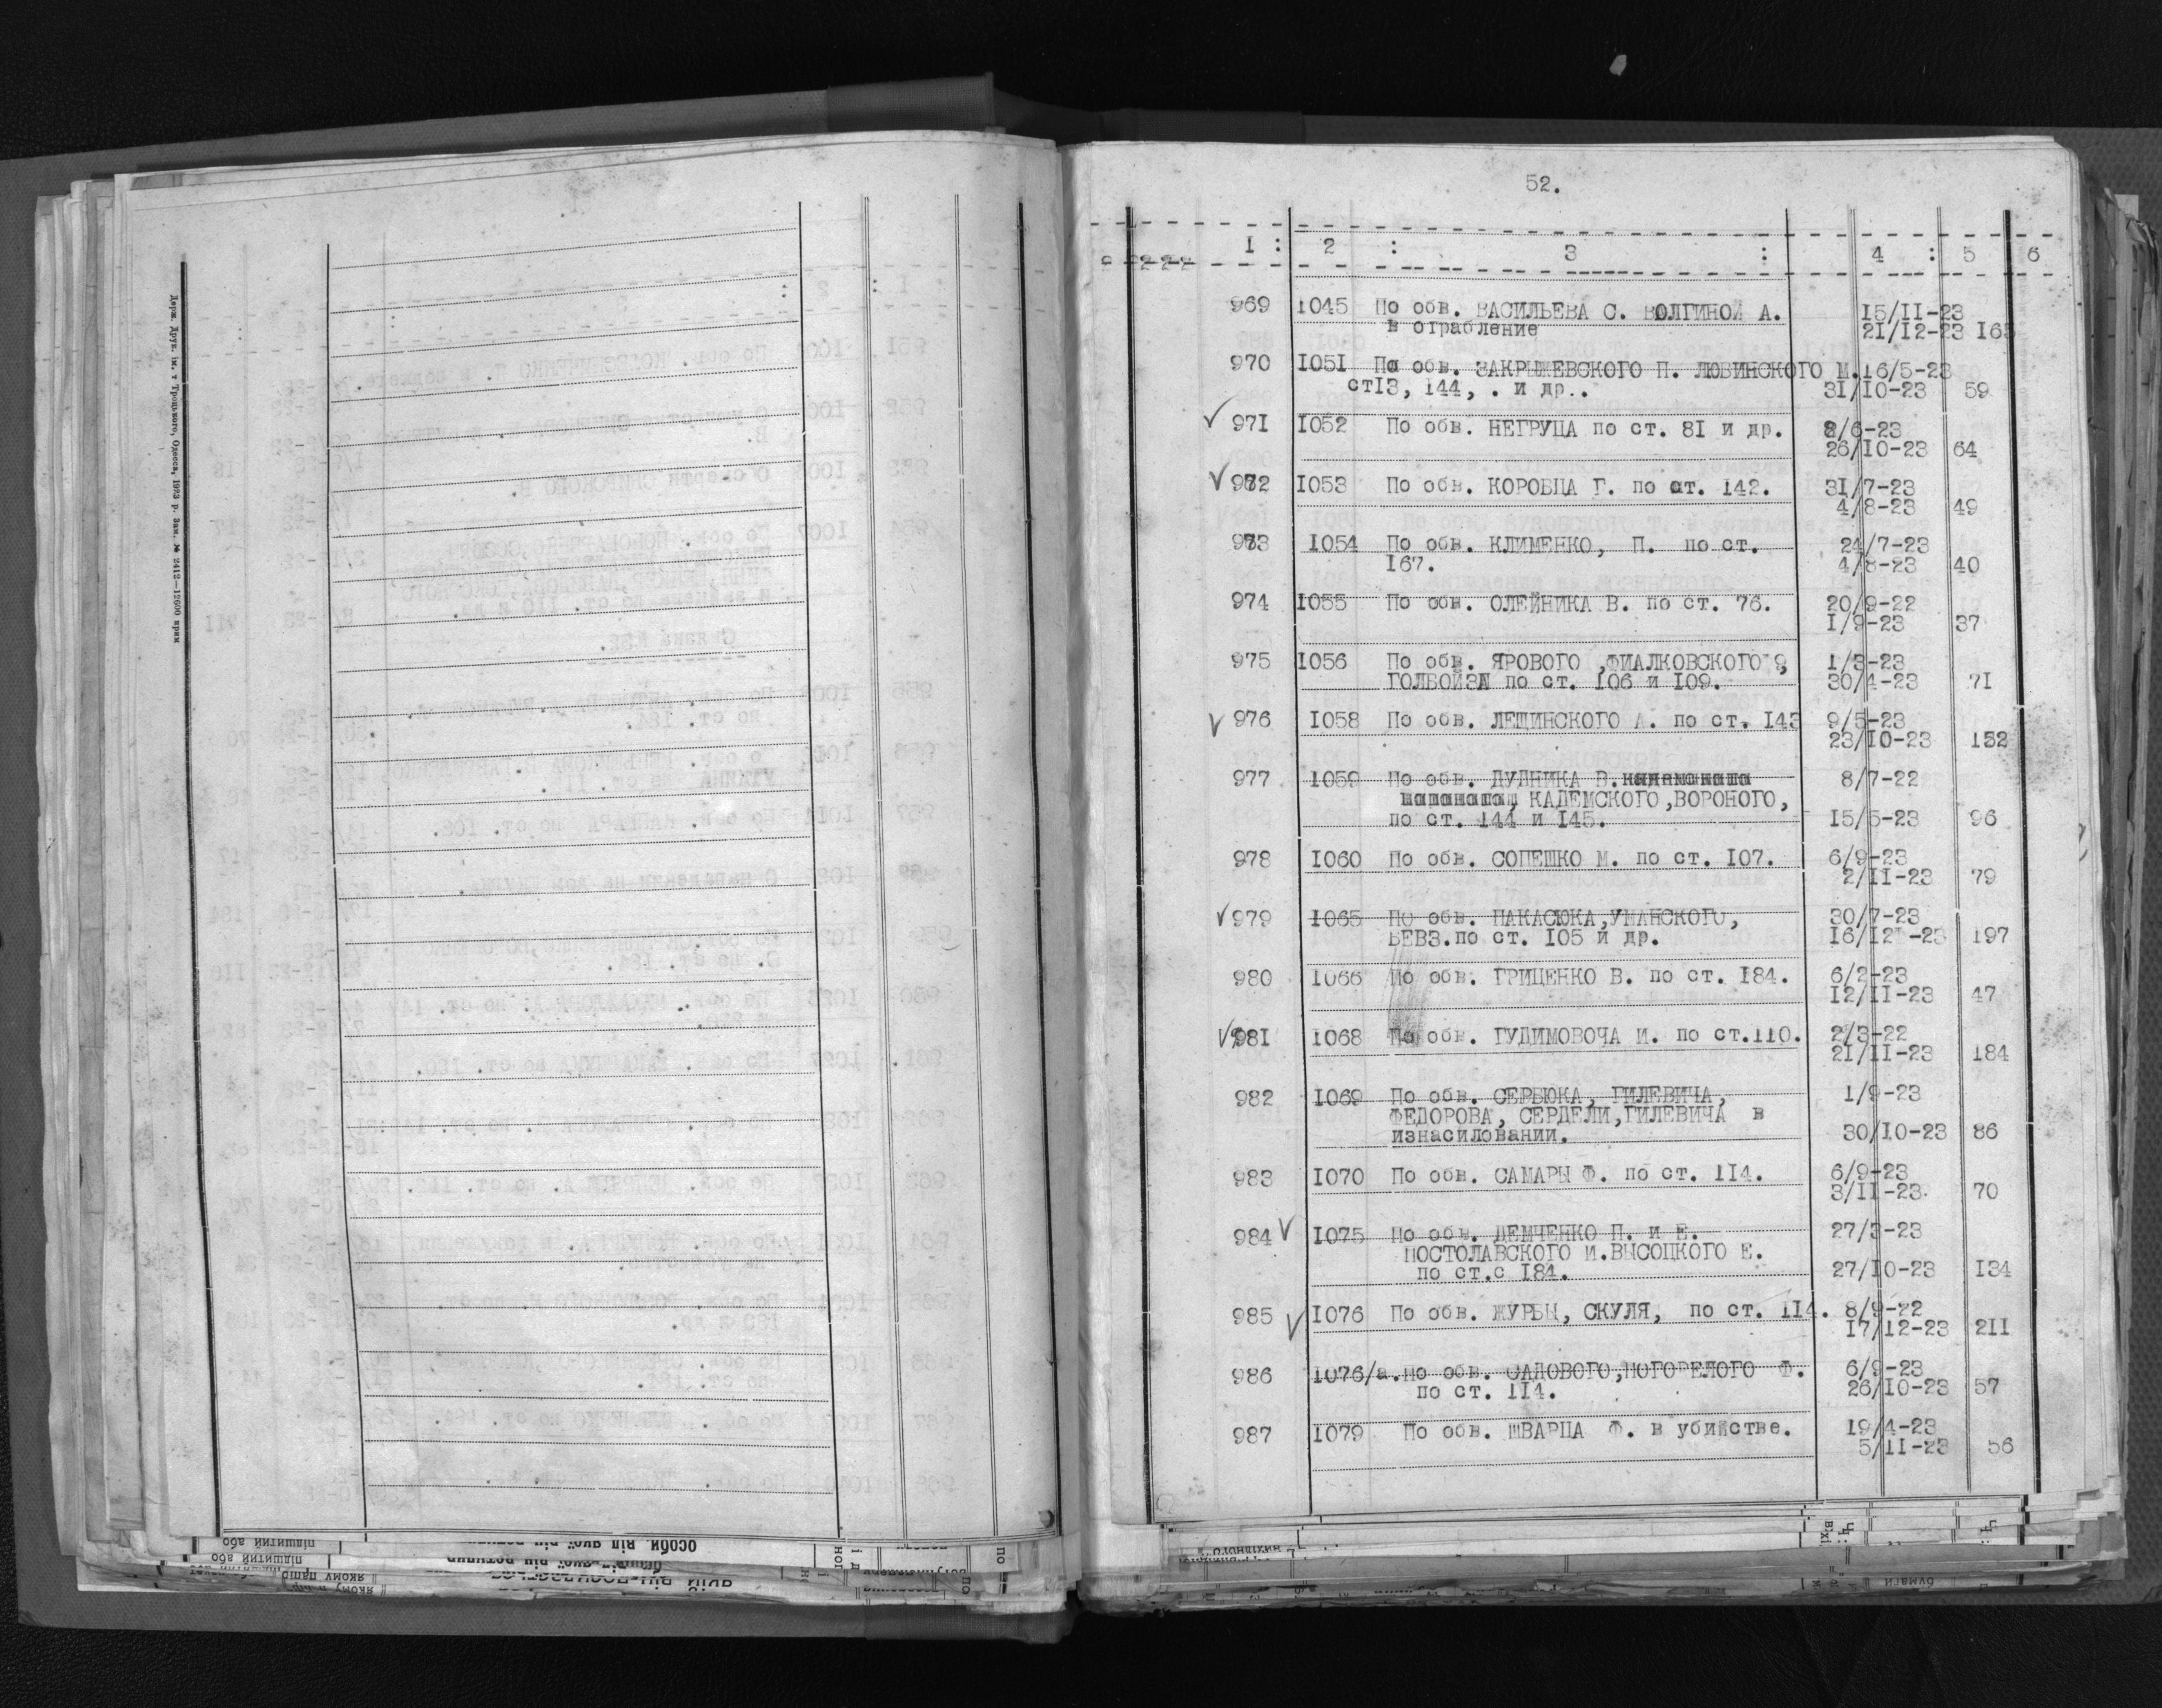 Держ. Друк. ім. т Троцького, Одесса, 1923 р. Зам. № 2412—12600 прим
52.
1 : 2 : 3 : 4 : 5 6
969 1045 По обв. ВАСИЛЬЕВА С. ВОЛГИНОЙ А. 15/11-23
в ограбление 21/12-23 165
970 1051 По обв. ЗАКРЫЖЕВСКОГО П. ЛЮБИНСКОГО М. 16/5-23
ст13, 144, . и др.. 31/10-23 59
✓ 971 1052 По обв. НЕГРУЦА по ст. 81 и др. 8/6-23
26/10-23 64
✓ 972 1053 По обв. КОРОБЦА Г. по ст. 142. 31/7-23
4/8-23 49
973 1054 По обв. КЛИМЕНКО, П. по ст. 24/7-23
167. 4/8-23 40
974 1055 По обв. ОЛЕЙНИКА В. по ст. 76. 20/9-22
1/9-23 37
975 1056 По обв. ЯРОВОГО ,ФИАЛКОВСКОГО 9, 1/3-23
ГОЛБОЙЗА по ст. 106 и 109. 30/4-23 71
✓ 976 1058 По обв. ЛЕЩИНСКОГО А. по ст. 143 9/5-23
23/10-23 152
977 1059 По обв. ДУДНИКА В. 8/7-22
КАДЕМСКОГО,ВОРОНОГО,
по ст. 144 и 145. 15/5-23 96
978 1060 По обв. СОПЕШКО М. по ст. 107. 6/9-23
2/11-23 79
✓ 979 1065 ПО обв. ПАКАСЮКА,УМАНСКОГО, 30/7-23
БЕВЗ.по ст. 105 и др. 16/12 -23 197
980 1066 По обв. ГРИЦЕНКО В. по ст. 184. 6/2-23
12/11-23 47
✓ 981 1068 По обв. ГУДИМОВОЧА И. по ст.110. 2/3-22
21/11-23 184
982 1069 По обв. СЕРБЮКА, ГИЛЕВИЧА, 1/9-23
ФЕДОРОВА, СЕРДЕЛИ,ГИЛЕВИЧА в
изнасиловании. 30/10-23 86
983 1070 По обв. САМАРЫ Ф. по ст. 114. 6/9-23
3/11-23. 70
984 ✓ 1075 По обв. ДЕМЧЕНКО П. и Е. 27/3-23
ПОСТОЛАВСКОГО И.ВЫСОЦКОГО Е.
по ст.с 184. 27/10-23 134
985 ✓ 1076 По обв. ЖУРБЫ, СКУЛЯ, по ст. 114. 8/9-22
17/12-23 211
986 1076/а. По обв. САДОВОГО,ПОГОРЕЛОГО Ф. 6/9-23
по ст. 114. 26/10-23 57
987 1079 По обв. ШВАРЦА Ф. в убийстве. 19/4-23
5/11-23 56